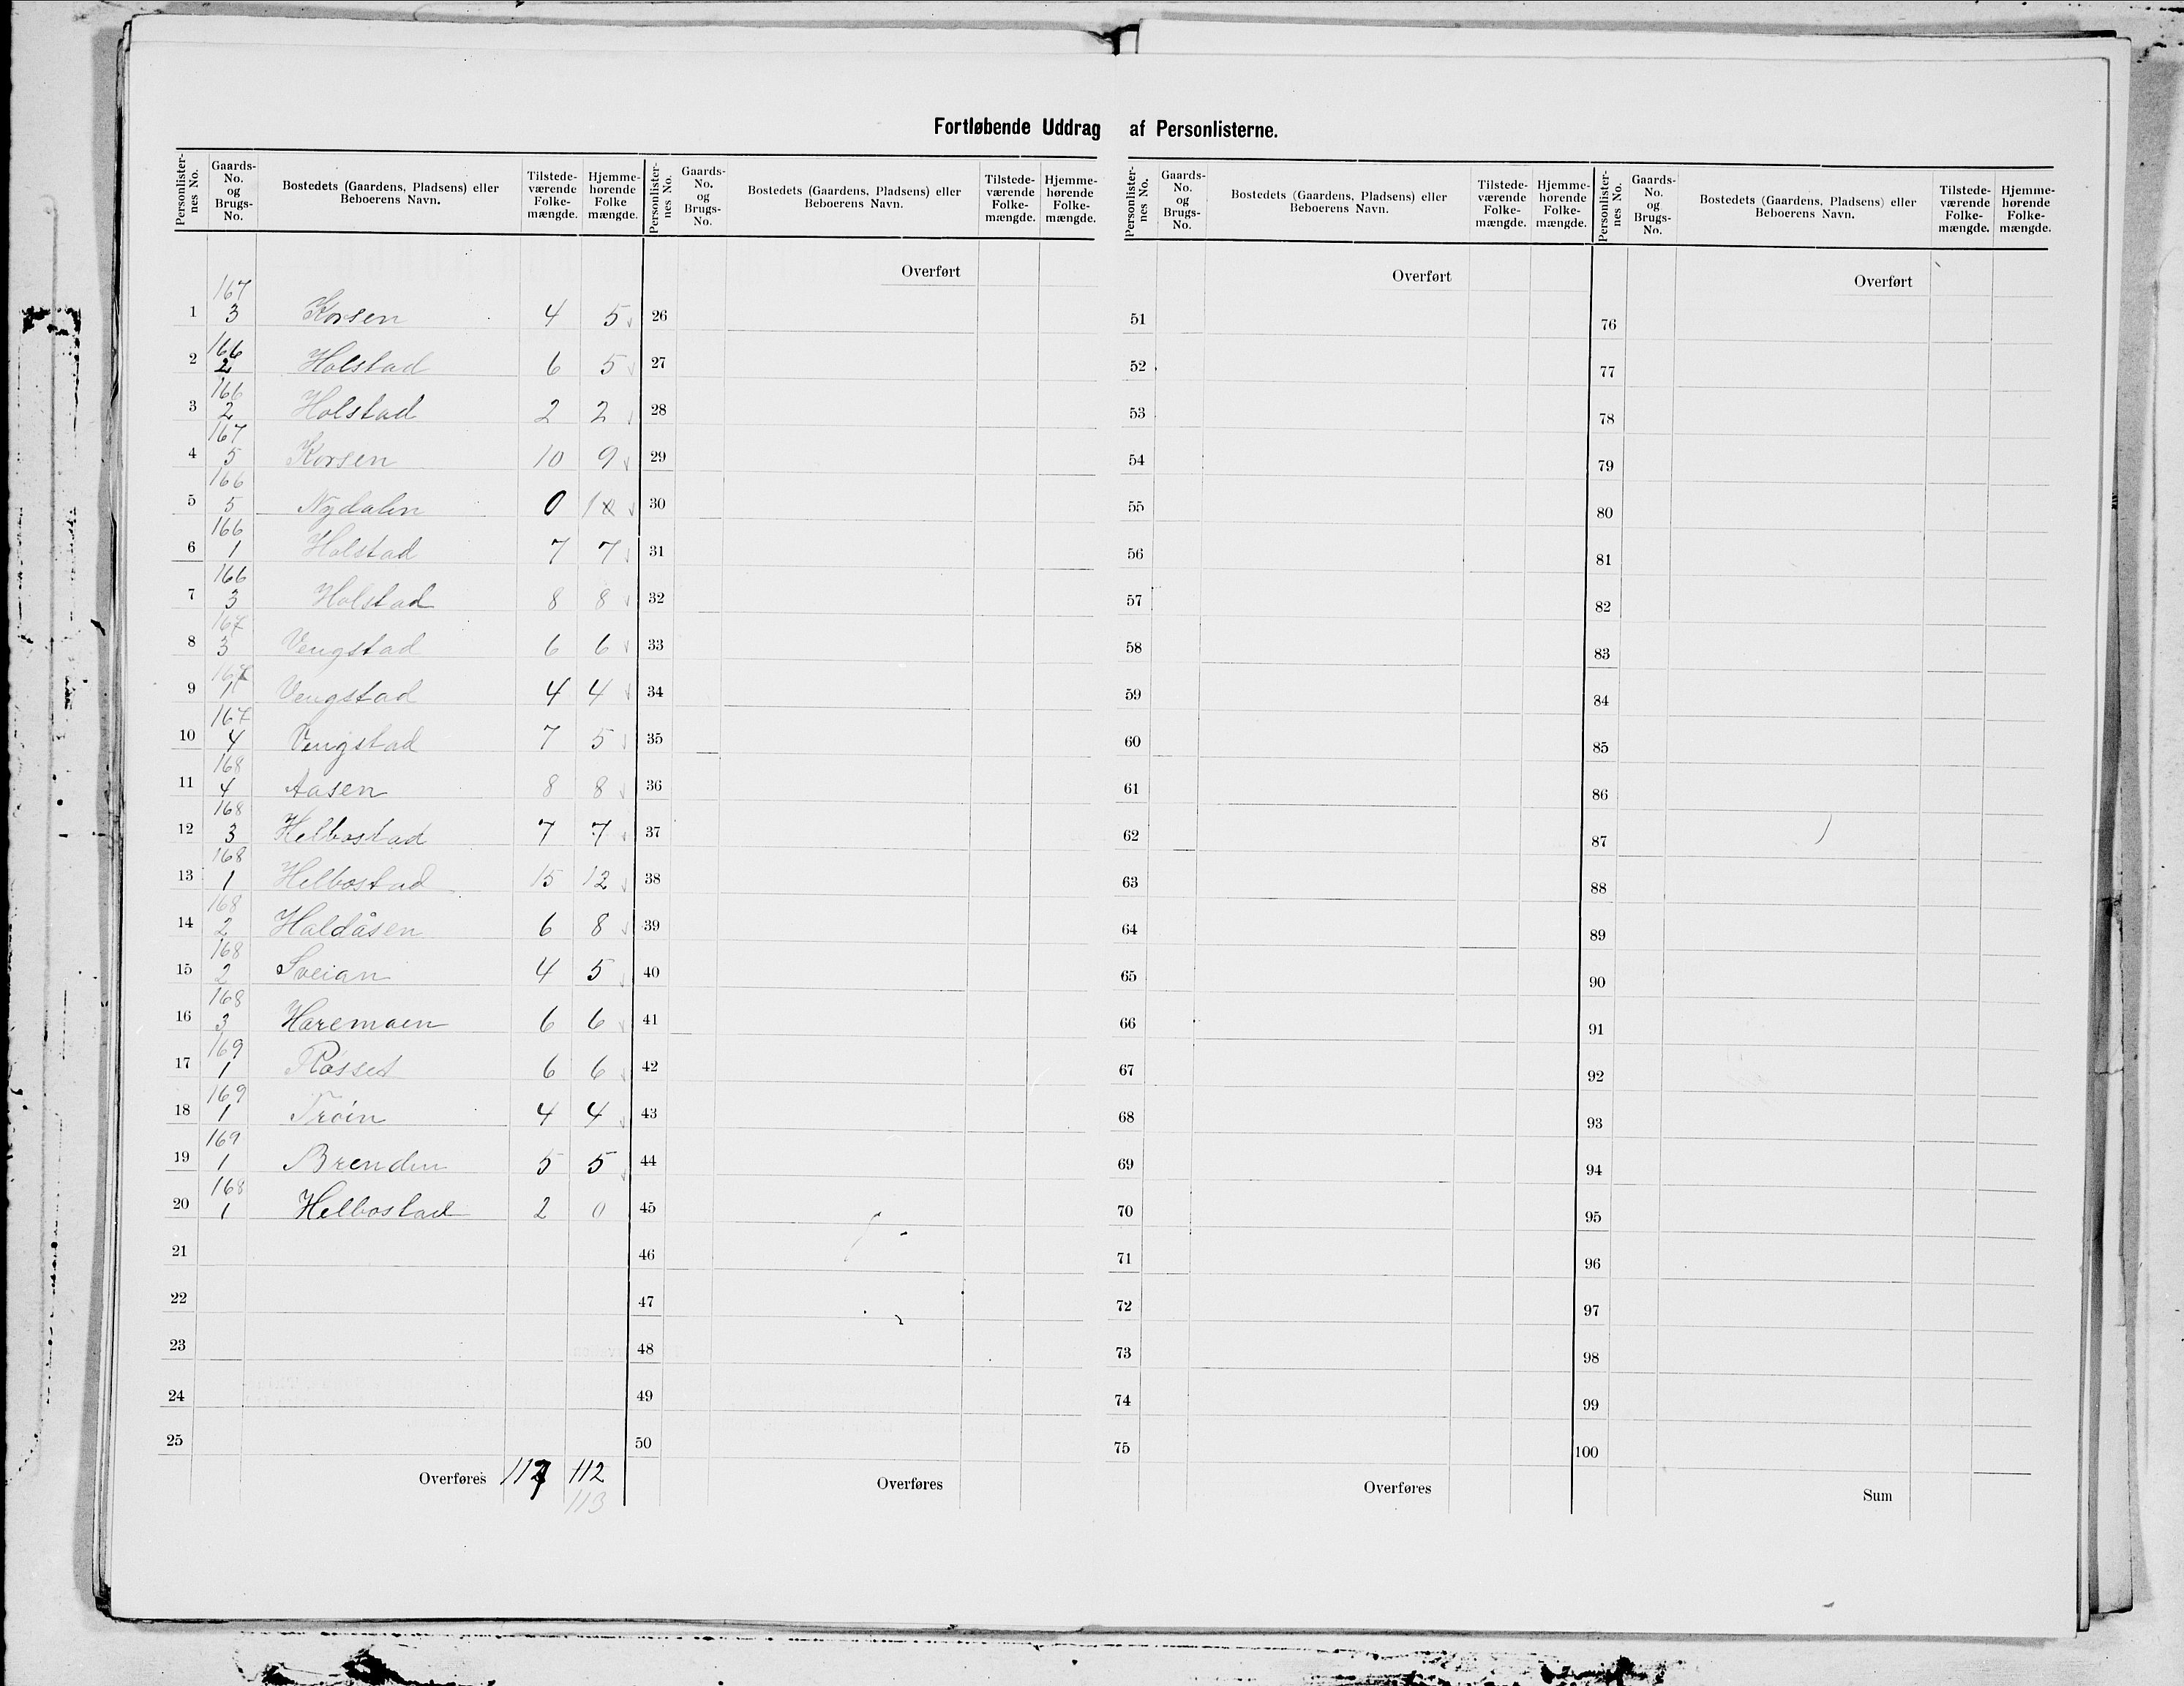 Fortløbende Uddrag af Personlisterne.
Personlister-nes No. | Gaards-No. og Brugs-No. | Bostedets (Gaardens, Pladsens) eller Beboerens Navn. | Tilstede-værende Folke-mængde. | Hjemme-hørende Folke mængde.
1 167 3 Korsen 4 5
2 166 2 Holstad 6 5
3 166 2 Holstad 2 2
4 167 5 Korsen 10 9
5 166 5 Nydalen 0 1
6 166 1 Holstad 7 7
7 166 3 Holstad 8 8
8 167 3 Vengstad 6 6
9 167 1 Vengstad 4 4
10 167 4 Vengstad 7 5
11 168 4 Aasen 8 8
12 168 3 Helbostad 7 7
13 168 1 Helbostad 15 12
14 168 2 Haldåsen 6 8
15 168 2 Sveian 4 5
16 168 3 Haremoen 6 6
17 169 1 Råsset 6 6
18 169 1 Trøin 4 4
19 169 1 Brenden 5 5
20 168 1 Helbostad 2 0
21
22
23
24
25
Overføres 117 112
113
Personlister-nes No. | Gaards-No. og Brugs-No. | Bostedets (Gaardens, Pladsens) eller Beboerens Navn. | Tilstede-værende Folke-mængde. | Hjemme-hørende Folke-mængde.
Overført
26
27
28
29
30
31
32
33
34
35
36
37
38
39
40
41
42
43
44
45
46
47
48
49
50
Overføres
Personlister-nes No. | Gaards-No. og Brugs-No. | Bostedets (Gaardens, Pladsens) eller Beboerens Navn. | Tilstede-værende Folke-mængde. | Hjemme-hørende Folke-mængde.
Overført
51
52
53
54
55
56
57
58
59
60
61
62
63
64
65
66
67
68
69
70
71
72
73
74
75
Overføres
Personlister-nes No. | Gaards-No. og Brugs-No. | Bostedets (Gaardens, Pladsens) eller Beboerens Navn. | Tilstede-værende Folke-mængde. | Hjemme-hørende Folke-mængde.
Overført
76
77
78
79
80
81
82
83
84
85
86
87
88
89
90
91
92
93
94
95
96
97
98
99
100
Sum